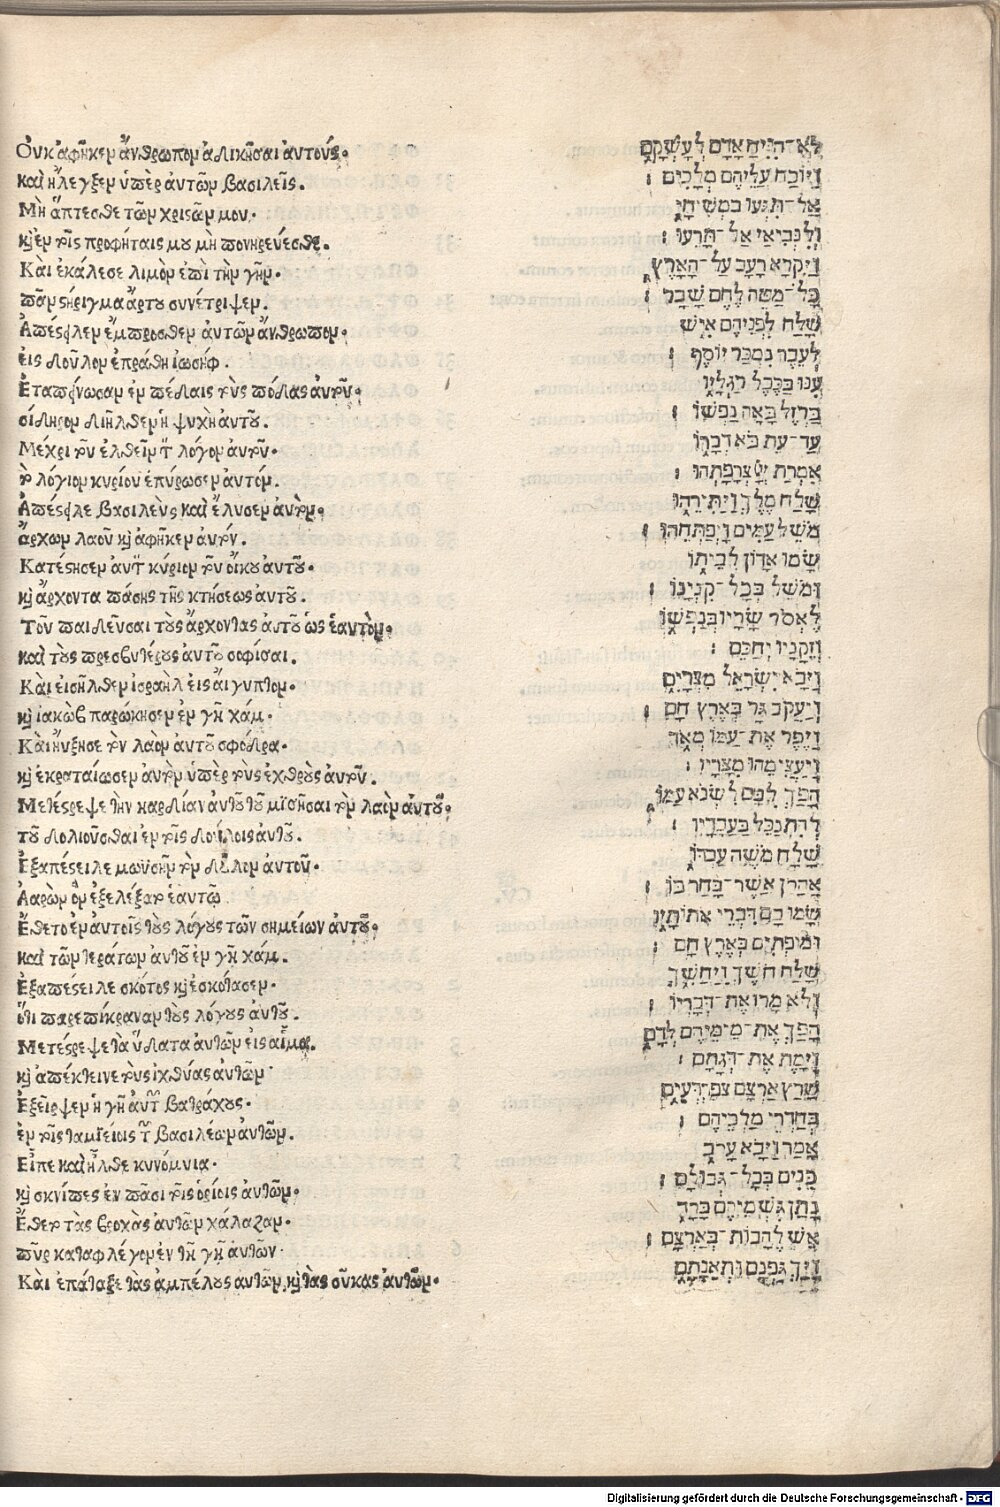 Οὐκ ἀφῆκεν ἄνθρωπον ἀδικῆσαι ἀυτούς.
καὶ ἤλεγξεν ὑπὲρ ἀυτῶν βασιλεῖς.
Μὴ ἅπτεσθε τῶν χριστῶν μου.
κ̀ ἐν τοῖς προφήταις μου μὴ πονηρεύεσθε.
Καὶ ἐκάλεσε λιμὸν ἐπὶ τὴν γῆν.
πᾶν στήριγμα ἄρτου συνέτριψεν.
Ἀπέστειλεν ἔμπροσθεν ἀυτῶν ἄνθρωπον.
εἰς δοῦλον ἐπράθη ἰωσήφ.
Ἐταπείνωσαν ἐν πέδαις τοὺς πόδας ἀυτοῦ.
σίδηρον διῆλθεν ἡ ψυχὴ ἀυτοῦ.
Μέχρι τοῦ ἐλθεῖν τὸν λόγον ἀυτοῦ.
τὸ λόγιον κυρίου ἐπύρωσεν ἀυτόν.
Ἀπέστειλε βασιλεὺς καὶ ἔλυσεν ἀυτὸν.
ἄρχων λαοῦ κ̀ ἀφῆκεν ἀυτόν.
Κατέστησεν ἀυτὸν κύριον τοῦ οἴκου ἀυτοῦ.
κ̀ ἄρχοντα πάσης τῆς κτήσεως ἀυτοῦ.
Τοῦ παιδεῦσαι τοὺς ἄρχοντας ἀυτοῦ ὡς ἑαυτὸν.
καὶ τοὺς πρεσβυτέρους ἀυτοῦ σοφίσαι.
Καὶ εἰσῆλθεν ἰσραὴλ εἰς ἄιγυπτον.
κ̀ ἰακὼβ παρώκησεν ἐν γῇ χάμ.
Καὶ ηὔξησε τὸν λαὸν ἀυτοῦ σφόδρα.
κ̀ ἐκραταίωσεν ἀυτὸν ὑπὲρ τοὺς ἐχθροὺς ἀυτοῦ.
Μετέστρεψε τὴν καρδίαν ἀυτοῦ τοῦ μισῆσαι τὸν λαὸν ἀυτοῦ.
τοῦ δολιοῦσθαι ἐν τοῖς δούλοις ἀυτοῦ.
Ἐξαπέστειλε μωϋσῆν τὸν δοῦλον ἀυτοῦ.
Ἀαρὼν ὃν ἐξελέξατο ἑαυτῷ
Ἔθετο ἐν ἀυτοῖς τοὺς λόγους τῶν σημείων ἀυτοῦ.
καὶ τῶν τεράτων ἀυτοῦ ἐν γῇ χάμ.
Ἐξαπέστειλε σκότος κ̀ ἐσκότασεν.
ὅτι παρεπίκραναν τοὺς λόγους ἀυτοῦ.
Μετέστρεψε τὰ ὕδατα ἀυτῶν εἰς αἷμα.
κ̀ ἀπέκτεινε τοὺς ἰχθύας ἀυτῶν
Ἐξεῖρψεν ἡ γῆ ἀυτῶν βατράχους.
ἐν τοῖς ταμιείοις τῶν βασιλέων ἀυτῶν.
Εἶπε καὶ ἦλθε κυνόμυια.
κ̀ σκνίπες ἐν πᾶσι τοῖς ὁρίοις ἀυτῶν.
Ἔθετο τὰς βροχὰς ἀυτῶν χάλαζαν.
πῦρ καταφλέγον ἐν τῇ γῇ ἀυτῶν.
Καὶ ἐπάταξε τὰς ἀμπέλους ἀυτῶν κ̀ τὰς συκὰς ἀυτῶν.
לֹא־הִנִּיחַ אָדָם לְעָשְׁקָם
וַיּוֹכַח עֲלֵיהֶם מְלָכִים ׃
אַל־תִּגְּעוּ בִמְשִׁיחָי
וְלִנְבִיאַי אַל־תָּרֵעוּ ׃
וַיִּקְרָא רָעָב עַל־הָאָרֶץ
כָּל־מַטֵּה לֶחֶם שָׁבָר ׃
שָׁלַח לִפְנֵיהֶם אִישׁ
לְעֶבֶד נִמְכַּר יוֹסֵף ׃
עִנּוּ בַכֶּבֶל רַגְלָיו
בַּרְזֶל בָּאָה נַפְשׁוֹ ׃
עַד־עֵת בֹּא דְבָרוֹ
אִמְרַת יְיָ צְרָפָתְהוּ ׃
שָׁלַח מֶלֶךְ וַיַּתִּירֵהוּ
מֹשֵׁל עַמִּים וַיְפַתְּחֵהוּ ׃
שָׂמוֹ אָדוֹן לְבֵיתוֹ
וּמֹשֵׁל בְּכָל־קִנְיָנוֹ ׃
לֶאְסֹר שָׂרָיו בְּנַפְשׁוֹ
וּזְקֵנָיו יְחַכֵּם ׃
וַיָּבֹא יִשְׂרָאֵל מִצְרָיִם
וְיַעֲקֹב גָּר בְּאֶרֶץ חָם ׃
וַיֶּפֶר אֶת־עַמּוֹ מְאֹד
וַיַּעֲצִמֵהוּ מִצָּרָיו ׃
הָפַךְ לִבָּם לִשְׂנֹא עַמּוֹ
לְהִתְנַכֵּל בַּעֲבָדָיו ׃
שָׁלַח מֹשֶׁה עַבְדּוֹ
אַהֲרֹן אֲשֶׁר־בָּחַר בּוֹ ׃
שָׂמוּ בָם דִּבְרֵי אֹתוֹתָיו
וּמֹפְתִים בְּאֶרֶץ חָם ׃
שָׁלַח חֹשֶׁךְ וַיַּחְשִׁךְ
וְלֹא מָרוּ אֶת־דְּבָרָיו ׃
הָפַךְ אֶת־מֵימֵיהֶם לְדָם
וַיָּמֶת אֶת־דְּגָתָם ׃
שָׁרַץ אַרְצָם צְפַרְדְּעִים
בְּחַדְרֵי מַלְכֵיהֶם ׃
אָמַר וַיָּבֹא עָרֹב
כִּנִּים בְּכָל־גְּבוּלָם ׃
נָתַן גִּשְׁמֵיהֶם בָּרָד
אֵשׁ לֶהָבוֹת בְּאַרְצָם ׃
וַיַּךְ גַּפְנָם וּתְאֵנָתָם
Digitalisierung gefördert durch die Deutsche Forschungsgemeinschaft - DFG